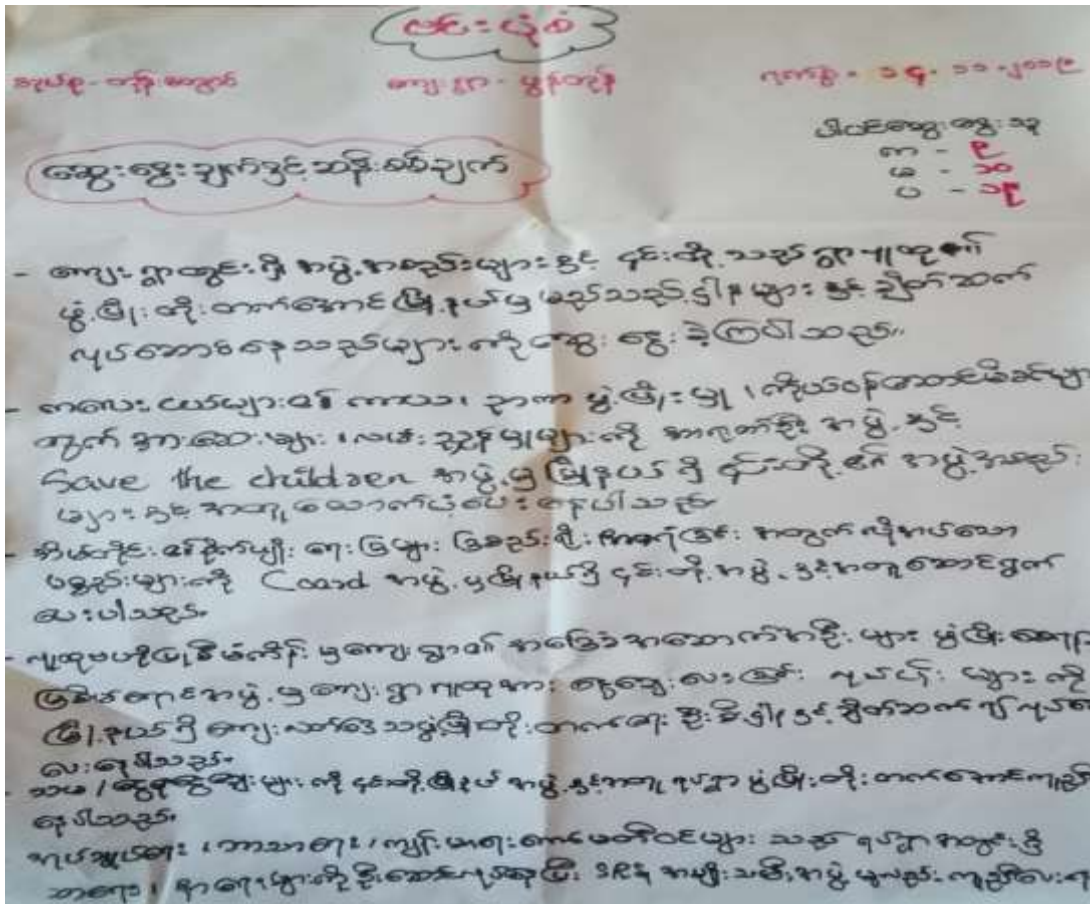 ဗင်းပုံစံ
အုပ်စု - ကျေးရွာ - ရက်စွဲ - ၁၄.၁၁.၂၀၁၉
ပါဝင်ဆွေးနွေးသူ
ကျား - ၉
မ - ၁၀
ပ - ၁၉
ဆွေးနွေးချက်နှင့်သုံးသပ်ချက်
- ကျေးရွာတွင်းရှိ အဖွဲ့အစည်းများနှင့် ၎င်းတို့သည် ရွာလူထု၏
ဖွံ့ဖြိုးတိုးတက်အောင် မြို့နယ်မှ မည်သည့်ဌာနများနှင့် ချိတ်ဆက်
လုပ်ဆောင်နေသည်များကို ဆွေးနွေးခဲ့ကြပါသည်။
- ကလေးငယ်များ၏ ကာယ၊ ဉာဏ ဖွံ့ဖြိုးမှု၊ ကိုယ်ဝန်ဆောင်မိခင်များ
တွက် အားဆေးများ၊ လမ်းညွှန်မှုများကို အဖွဲ့နှင့်
Save the children အဖွဲ့မှ မြို့နယ်ရှိ ၎င်းတို့၏ အဖွဲ့အစည်း
များနှင့်အတူ ထောက်ပံ့ပေးနေပါသည်။
စိုက်ပျိုးရေး ခြံစည်းရိုး အတွက် လိုအပ်သော
ပစ္စည်းများကို Coard အဖွဲ့မှ မြို့နယ်ရှိ ၎င်းတို့အဖွဲ့နှင့်အတူ ဆောင်ရွက်
ပေးပါသည်။
- လူထုဗဟိုပြုစီမံကိန်းမှ ကျေးရွာ၏ အခြေခံအဆောက်အဦးများ ဖွံ့ဖြိုး
အဖွဲ့မှ ကျေးရွာလူထုအား ငွေချေးပေးခြင်း လုပ်ငန်းများကို
မြို့နယ်ရှိ ကျေးလက်ဒေသဖွံ့ဖြိုးတိုးတက်ရေး ဦးစီးဌာနနှင့် ချိတ်ဆက်၍ လုပ်
ပေးရပါသည်။
- သမ / များကို ၎င်းတို့မြို့နယ်အဖွဲ့နှင့်အတူ ရပ်ရွာဖွံ့ဖြိုးတိုးတက်အောင် ကူညီ
နေပါသည်။
အုပ်ချုပ်ရေး၊ ဘာသာရေး၊ ကျန်းမာရေးကော်မတီဝင်များသည် ရပ်ရွာအတွင်းရှိ
သာရေး၊ နာရေးများကို ဦးဆောင်လုပ် ပြီး အမျိုးသမီးအဖွဲ့မှလည်း ကူညီပေး